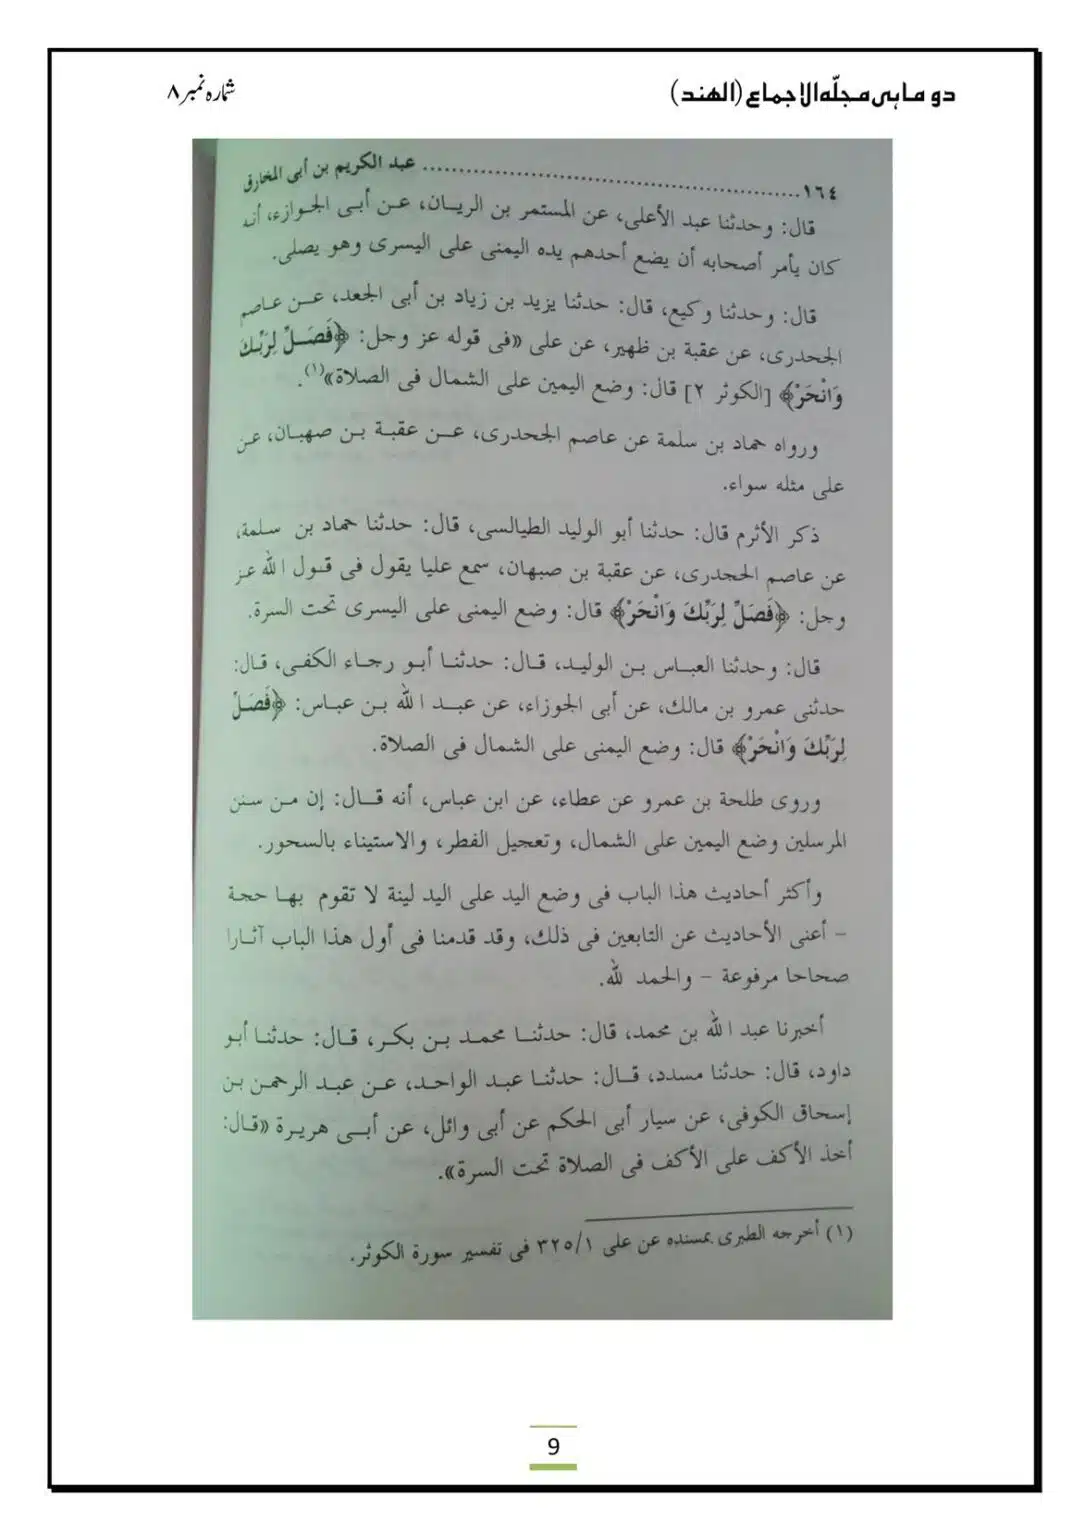 دو ماہی مجلّہ الاجماع (الھند)
شمارہ نمبر ۸
١٦٤ ........................................ عبد الكريم بن أبى المخارق
قال: وحدثنا عبد الأعلى، عن المستمر بن الريان، عن أبى الجوازء، أنه
كان يأمر أصحابه أن يضع أحدهم يده اليمنى على اليسرى وهو يصلى.
قال: وحدثنا وكيع، قال: حدثنا يزيد بن زياد بن أبى الجعد، عن عاصم
الجحدرى، عن عقبة بن ظهير، عن على «فى قوله عز وجل: ﴿فَصَلِّ لِرَبِّكَ
وَانْحَرْ﴾ [الكوثر ٢] قال: وضع اليمين على الشمال فى الصلاة»(١).
ورواه حماد بن سلمة عن عاصم الجحدرى، عن عقبة بن صهبان، عن
على مثله سواء.
ذكر الأثرم قال: حدثنا أبو الوليد الطيالسى، قال: حدثنا حماد بن سلمة،
عن عاصم الجحدرى، عن عقبة بن صبهان، سمع عليا يقول فى قول الله عز
وجل: ﴿فَصَلِّ لِرَبِّكَ وَانْحَرْ﴾ قال: وضع اليمنى على اليسرى تحت السرة.
قال: وحدثنا العباس بن الوليد، قال: حدثنا أبو رجاء الكفى، قال:
حدثنى عمرو بن مالك، عن أبى الجوزاء، عن عبد الله بن عباس: ﴿فَصَلِّ
لِرَبِّكَ وَانْحَرْ﴾ قال: وضع اليمنى على الشمال فى الصلاة.
وروى طلحة بن عمرو عن عطاء، عن ابن عباس، أنه قال: إن من سنن
المرسلين وضع اليمين على الشمال، وتعجيل الفطر، والاستيناء بالسحور.
وأكثر أحاديث هذا الباب فى وضع اليد على اليد لينة لا تقوم بها حجة
- أعنى الأحاديث عن التابعين فى ذلك، وقد قدمنا فى أول هذا الباب آثارا
صحاحا مرفوعة - والحمد لله.
أخبرنا عبد الله بن محمد، قال: حدثنا محمد بن بكر، قال: حدثنا أبو
داود، قال: حدثنا مسدد، قال: حدثنا عبد الواحد، عن عبد الرحمن بن
إسحاق الكوفى، عن سيار أبى الحكم عن أبى وائل، عن أبى هريرة «قال:
أخذ الأكف على الأكف فى الصلاة تحت السرة».
(١) أخرجه الطبرى بمسنده عن على ٣٢٥/١ فى تفسير سورة الكوثر.
9